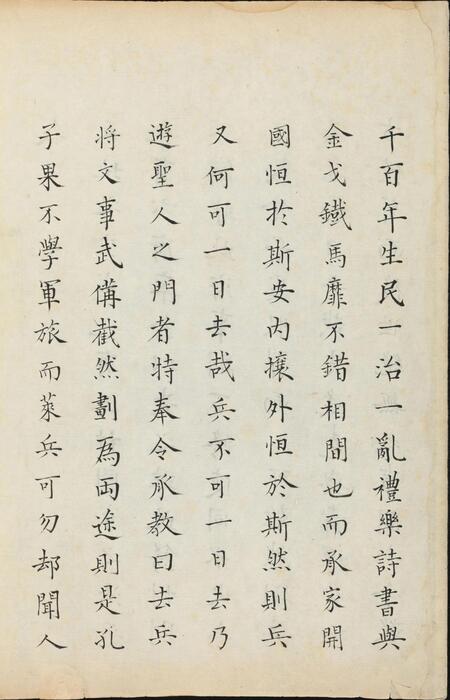 千百年生民一治一亂禮樂詩書與
金戈鐵馬靡不錯相間也而承家開
國恒扵斯安内攘外恒於斯然則兵
又何可一日去哉兵不可一日去乃
遊聖人之門者特奉令承教曰去兵
将文事武備截然劃為両途則是孔
子果不學軍旅而萊兵可勿却聞人